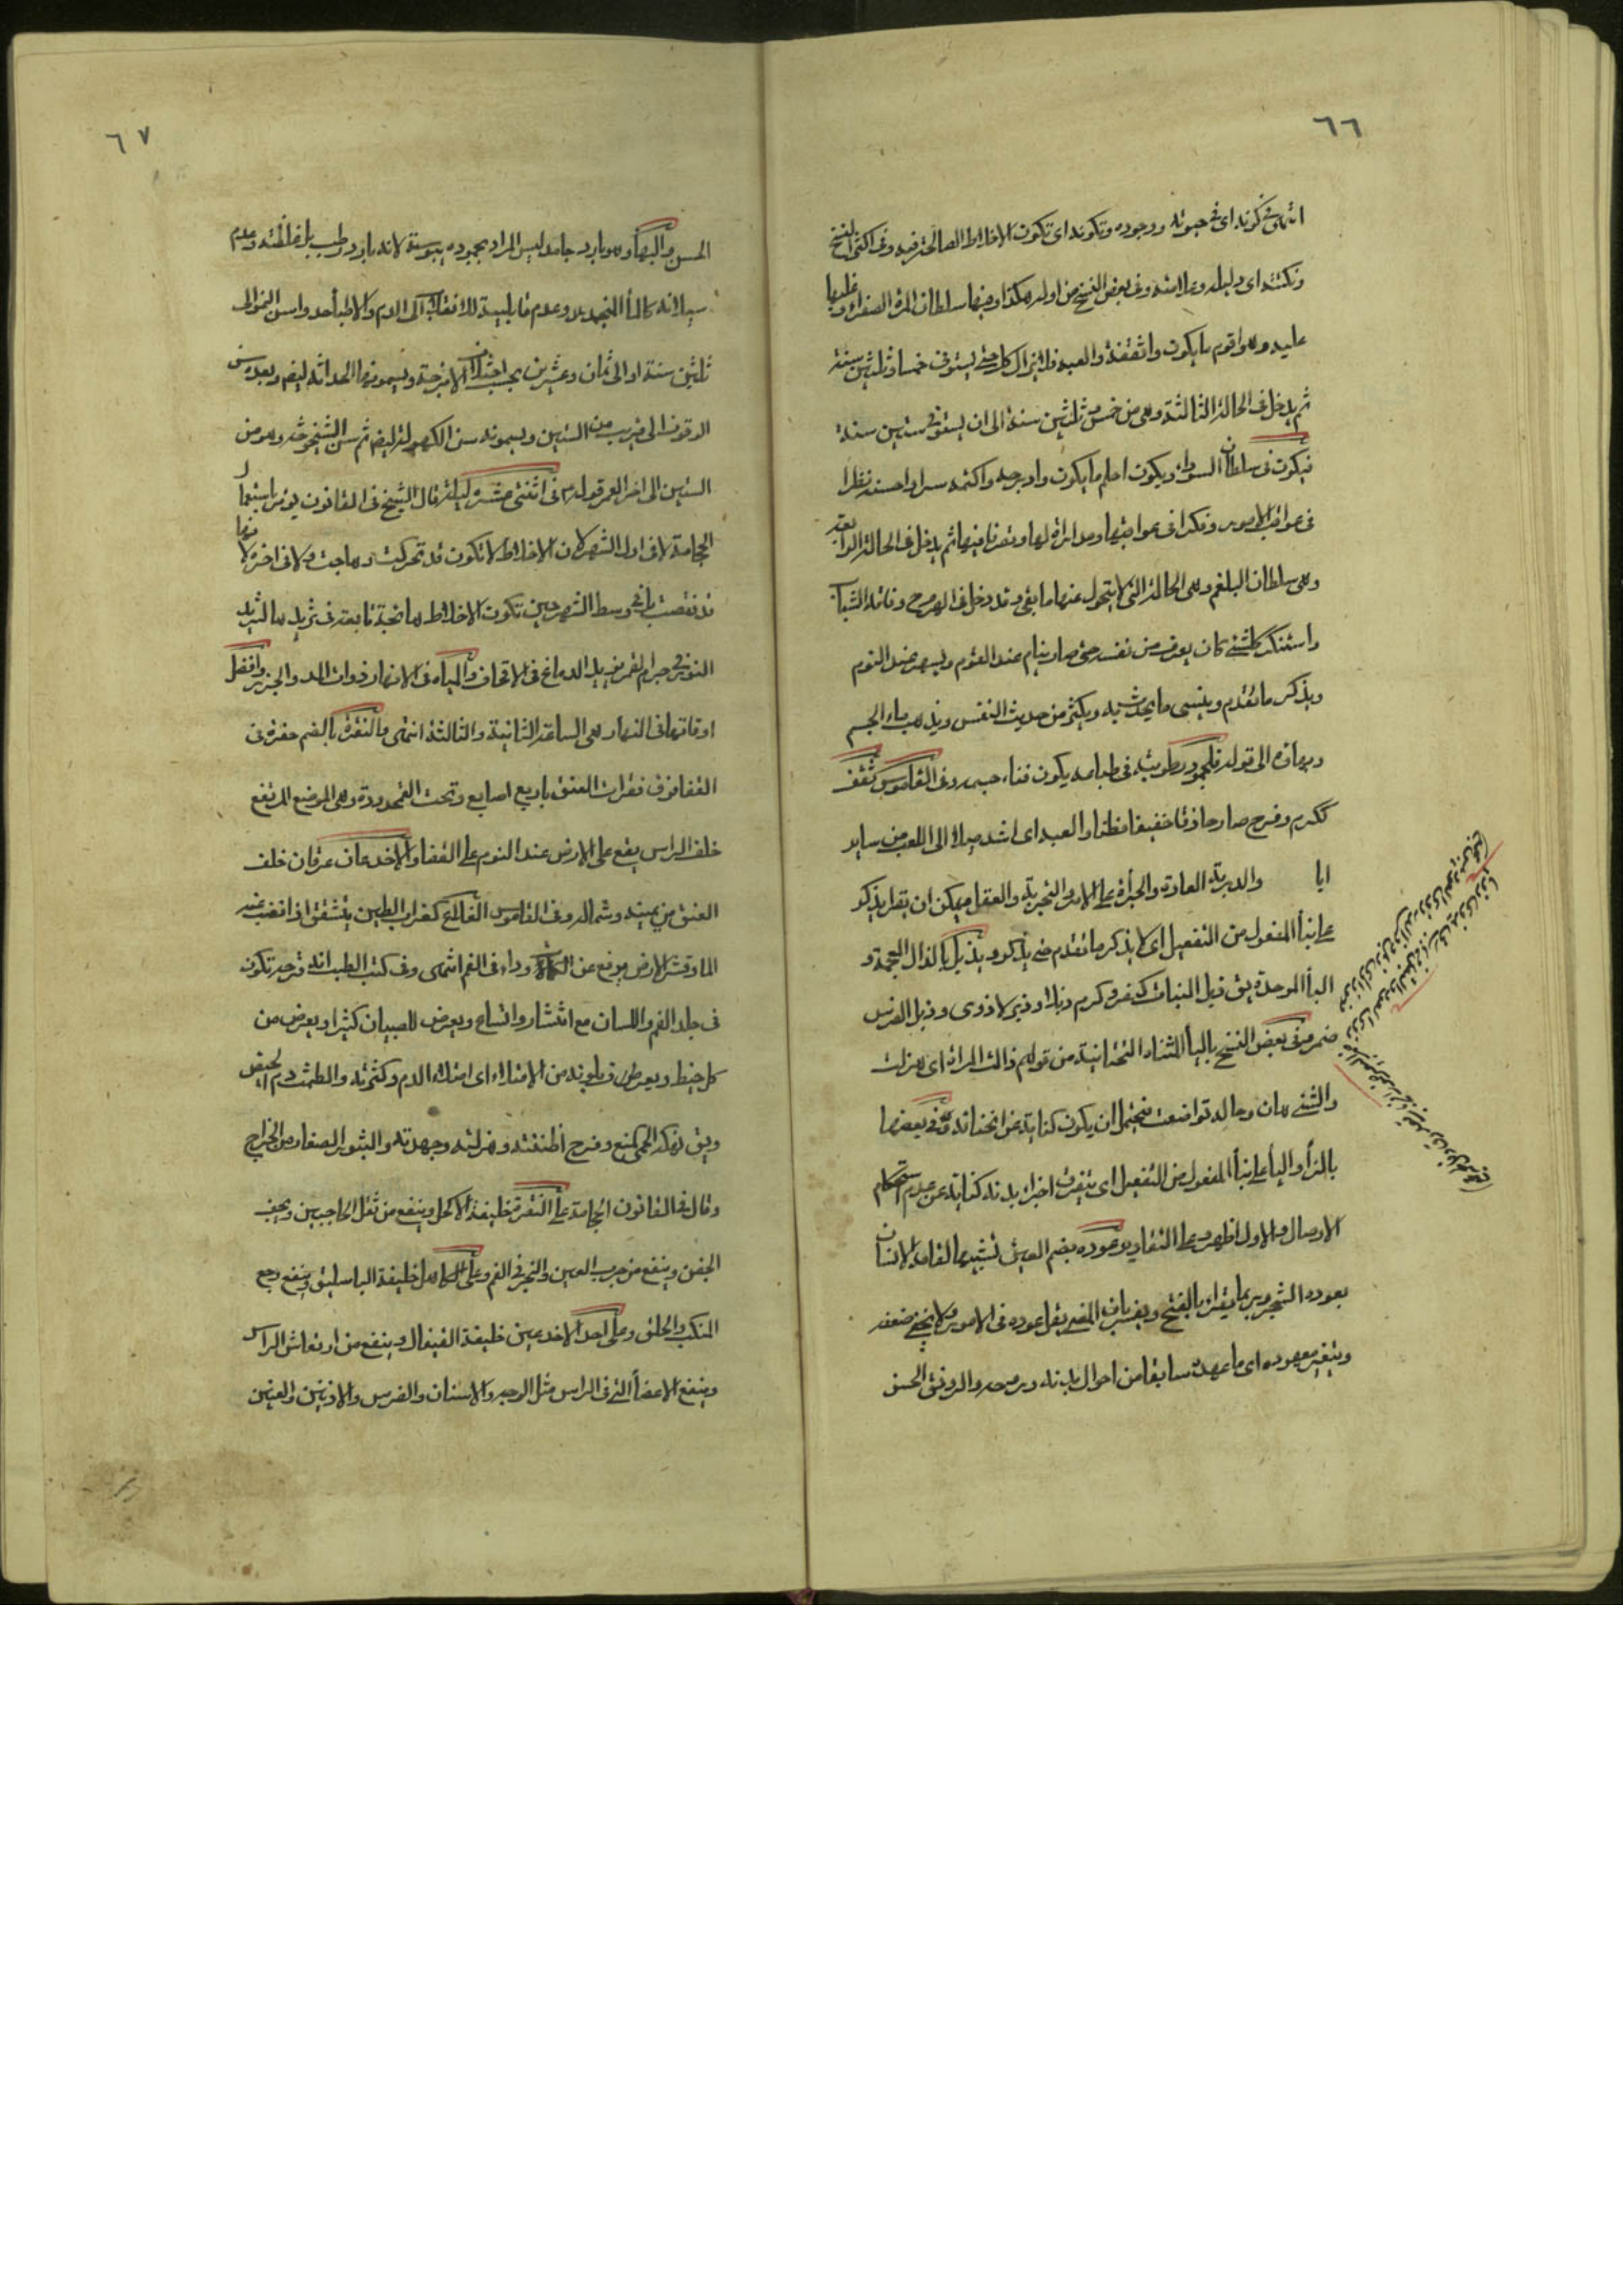 ٦٦
انتهى في كونه اى في حيوته ووجوده وتكونه اى تكون الاخلاط الصالحة فيه وفى اكثر النسخ
ونكتته اى دليله وعلامته وفى بعض النسخ من اوله هكذا وفيها سلطان المرة الصفراء وغلبتها
عليه وهو اقوم ما يكون واثقفه والعبه فلا يزال كذلك حتى يستوفى خمسا وثلثين سنة
ثم يدخل فى الحالة الثالثة وهى من خمس وثلثين سنة الى ان يستوفى ستين سنة
فيكون فى سلطان السوداء ويكون احلم ما يكون وادربه واكتمه سرا واحسنه نظرا
فى عواقب الامور وفكرا فى عواقبها ومداراة لها وتصرفا فيها ثم يدخل فى الحالة الرابعة
وهى سلطان البلغم وهى الحالة التى لا يتحول عنها ما بقى وقد دخل فى الهرم وفاته الشباب
واستنكر كل شئ كان يعرف من نفسه حتى صار ينام عند القوم ويسهر عند النوم
ويذكر ما تقدم وينسى ما يحدث به ويكثر من حديث النفس ويذهب ماء الجسم
وبهاؤه الى قوله فلجمود رطوبته فى طباعه يكون فناء جسمه وفى القاموس ثقف
ككرم وفرح صار حاذقا خفيفا فطنا والعبه اى اشد ميلا الى اللعب من ساير
ايا والدربة العادة والجرأة على الامر والتجربة والعقل ويمكن ان يقرا يذكر
على بناء المفعول من التفعيل اى لا يذكر ما تقدم حتى يذكر ويذبل بالذال المعجمة و
الباء الموحدة يق ذبل النبات كنصر وكرم ذبلا وذبولا ذوى وذبل الفرس
ضمر وفى بعض النسخ بالياء المثناة التحتانية من قولهم ذالت المراة اى هزلت
والشئ هان وحاله تواضعت فيحتمل ان يكون كناية عن انحنائه وفى بعضها
بالزاء والياء على بناء المفعول من التفعيل اى يتفرق اجزاء بدنه كناية عن عدم استحكام
الاوصال والاول اظهر وعلى التقادير عوده بضم العين تشبيها لقامة الانسان
بعود الشجر وربما يقرا بالفتح ويفسر بان المعنى يقل عوده فى الامور ولا يخفى ضعفه
ويتغير معهوده اى ما عهده سابقا من احوال بدنه وروحه والرونق الحسن
٦٧
الحسن والبهاء وهو بارد جامد ليس المراد بجموده يبوسته لانه بارد رطب بل غلظته وعدم
سيلانه كالماء المنجمد وعدم قابليته للانقلاب الى الدم والاطباء حدوا سن النمو الى
ثلثين سنة او الى ثمان وعشرين بحسب اختلاف الامزجة ويسمونها الحداثة ايضا وبعده سن
الوقوف الى قريب من الستين ويسمونه سن الكهولة ايضا ثم سن الشيخوخة وهو من
الستين الى اخر العمر قوله فى اثنتى عشرة ليلة قال الشيخ فى القانون يؤمر باستعمال
الحجامة لا فى اول الشهر لان الاخلاط لا تكون قد تحركت وهاجت ولا فى اخره لانها
قد نقصت بل فى وسط الشهر حين تكون الاخلاط هايجة تابعة فى تزيدها لتزيد
النور فى جرم القمر يزيد الدماغ فى الاقحاف والمياه فى الانهار ذوات المد والجزر وافضل
اوقاتها فى النهار هى الساعة الثانية والثالثة انتهى والنقرة بالضم حفرة فى
القفا فوق فقرات العنق باربع اصابع وتحت القمحدوة وهى الموضع المرتفع
خلف الراس يقع على الارض عند النوم على القفا والاخدعان عرقان خلف
العنق من يمينه وشماله وفى القاموس القلاع كغراب الطين يتشقق اذا نضب عنه
الماء وقشر الارض يرتفع عن الكمأة وداء فى الفم انتهى وفى كتب الطب انه قرحة تكون
فى جلد الفم واللسان مع انتشار واتساع ويعرض للصبيان كثيرا ويعرض من
كل خلط ويعرف بلونه من الامتلاء اى امتلاء الدم وكثرته والطمث دم الحيض
ويق نهكه الحمى كمنع وفرح اضنته وهزلته وجهدته والبثور الصغار من الخراج
وقال فى القانون الحجامة على النقرة خليفة الاكحل وينفع من ثقل الحاجبين ويخفف
الجفن وينفع من جرب العين والبخر فى الفم وعلى الكاهل خليفة الباسليق وينفع وجع
المنكب والحلق وعلى احد الاخدعين خليفة القيفال وينفع من ارتعاش الراس
وينفع الاعضاء التى فى الراس مثل الوجه والاسنان والضرس والاذنين والعينين